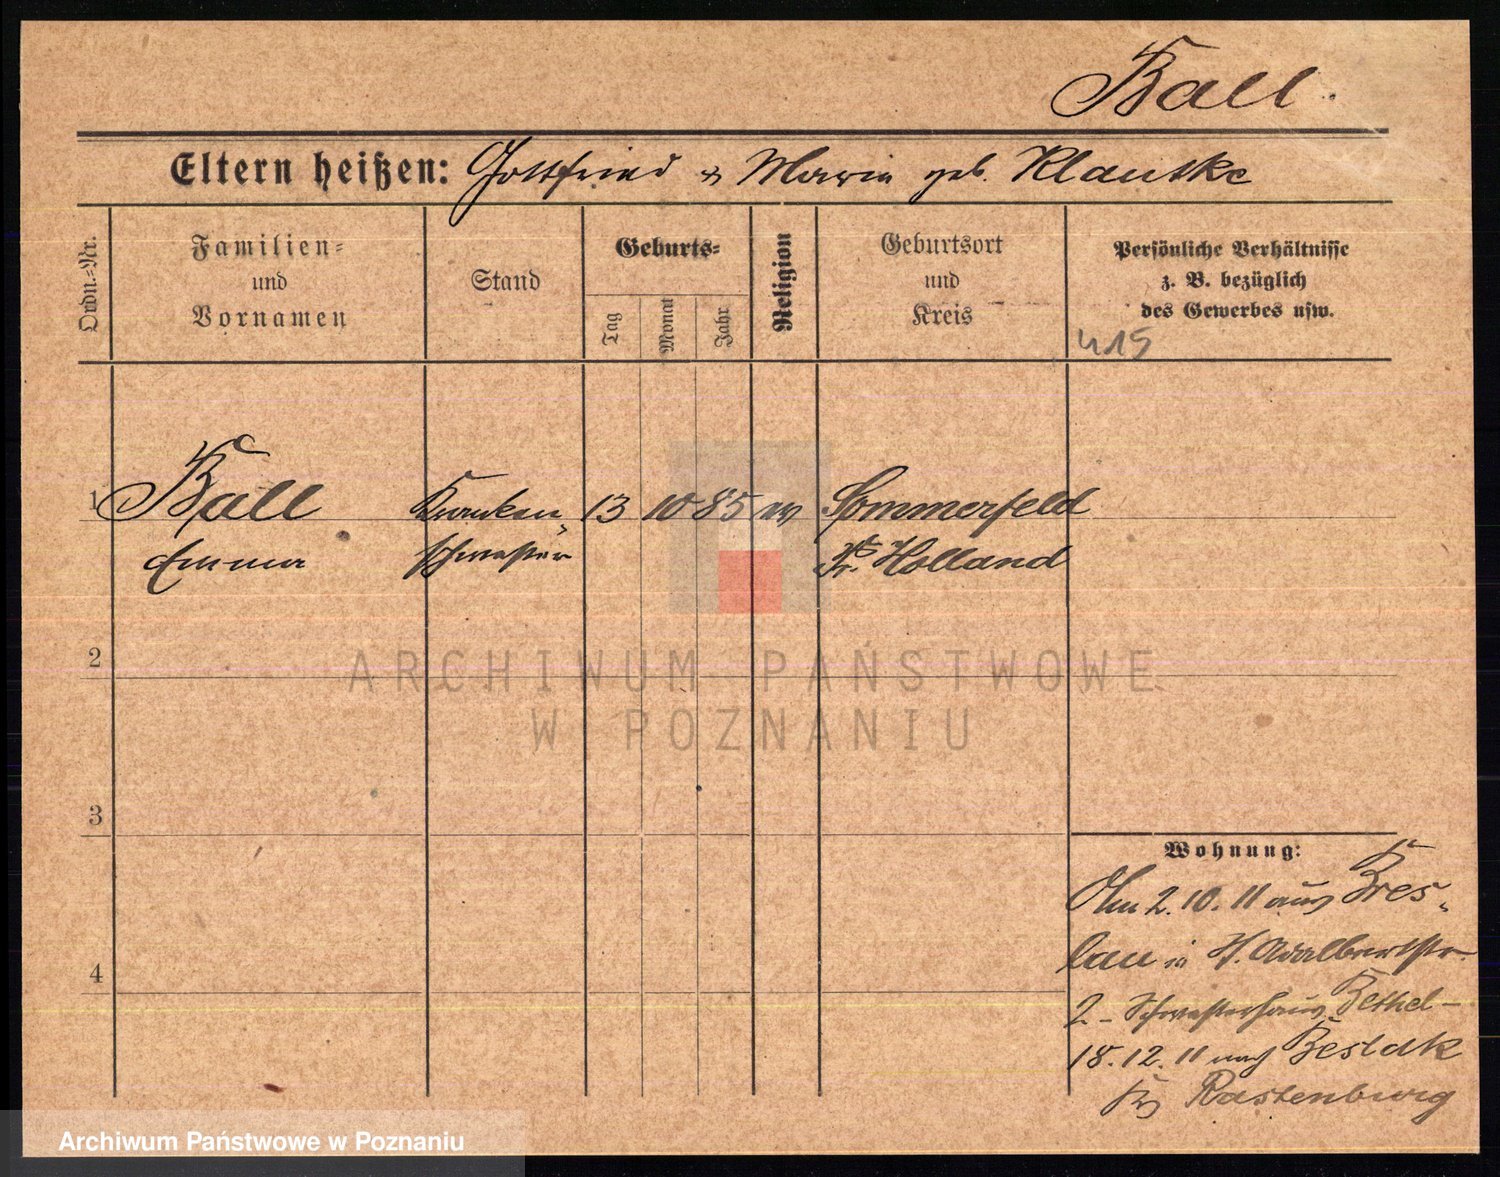 Ball.
Eltern heißen: Gottfried u Marie geb. Klautke
Ordn.=Nr.
Familien=
und
Vornamen
Stand
Geburts=
Tag
Monat
Jahr
Religion
Geburtsort
und
Kreis
Persönliche Verhältnisse
z. B. bezüglich
des Gewerbes usw.
415
1 Ball Kranken 13 10 85 ev Sommerfeld
Emma schwester Pr. Holland
2
3
4
Wohnung:
2.10.11 aus Bres-
lau in H. Adalbertstr.
2 - Schwesterhaus Bethel -
18.12.11 nach
Rastenburg
ARCHIWUM PAŃSTWOWE
W POZNANIU
Archiwum Państwowe w Poznaniu